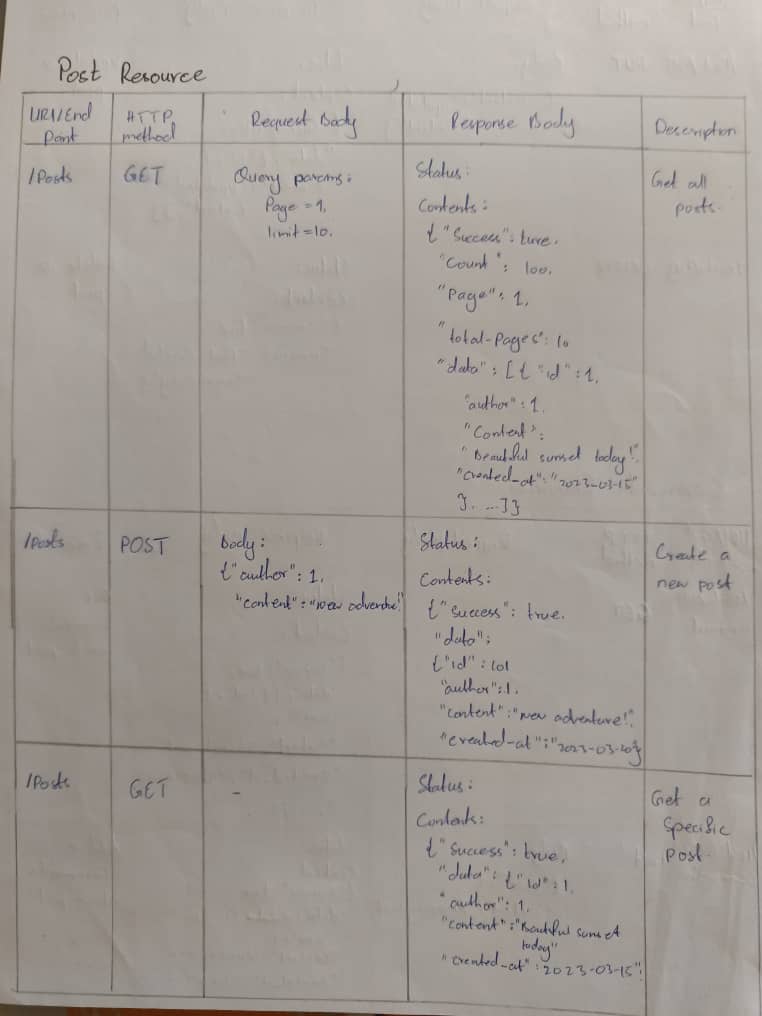 Post Resource
URI/End Point
HTTP method
Request Body
Response Body
Description
/Posts
GET
Query params:
Page = 1,
limit=10.
Status:
Contents:
{ "Success": ture,
"Count": 100,
"Page": 1,
"total-pages": 10
"data": [{ "id": 1,
"author": 1,
"Content":
"Beautiful sunset today!"
"created-at": "2023-03-15"
}. ...]}
Get all
posts.
/Posts
POST
Body:
{"author": 1,
"content": "New adventure!"
Status:
Contents:
{"success": true,
"data":
{"id": 101
"author": 1,
"content": "New adventure!"
"created-at": "2023-03-20}
Create a
new post
/Posts
GET
-
Status:
Contents:
{"Success": true,
"data": {"id": 1,
"author": 1,
"content": "Beautiful sunset
today"
"created-at": 2023-03-15"
Get a
Specific
Post.